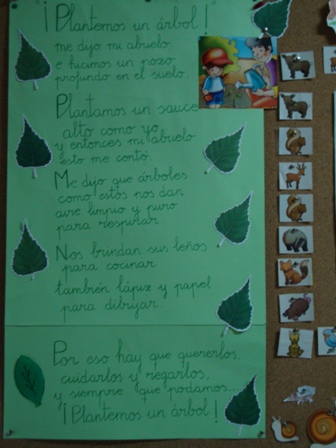 ¡Plantemos un árbol!
me dijo mi abuelo
e hicimos un pozo
profundo en el suelo.
Plantamos un sauce
alto como yo
y entonces mi abuelo
esto me contó.
Me dijo que árboles
como estos nos dan
aire limpio y puro
para respirar.
Nos brindan sus leños
para cocinar
también lápiz y papel
para dibujar.
Por eso hay que quererlos,
cuidarlos y regarlos,
y siempre que podamos...
¡Plantemos un árbol!